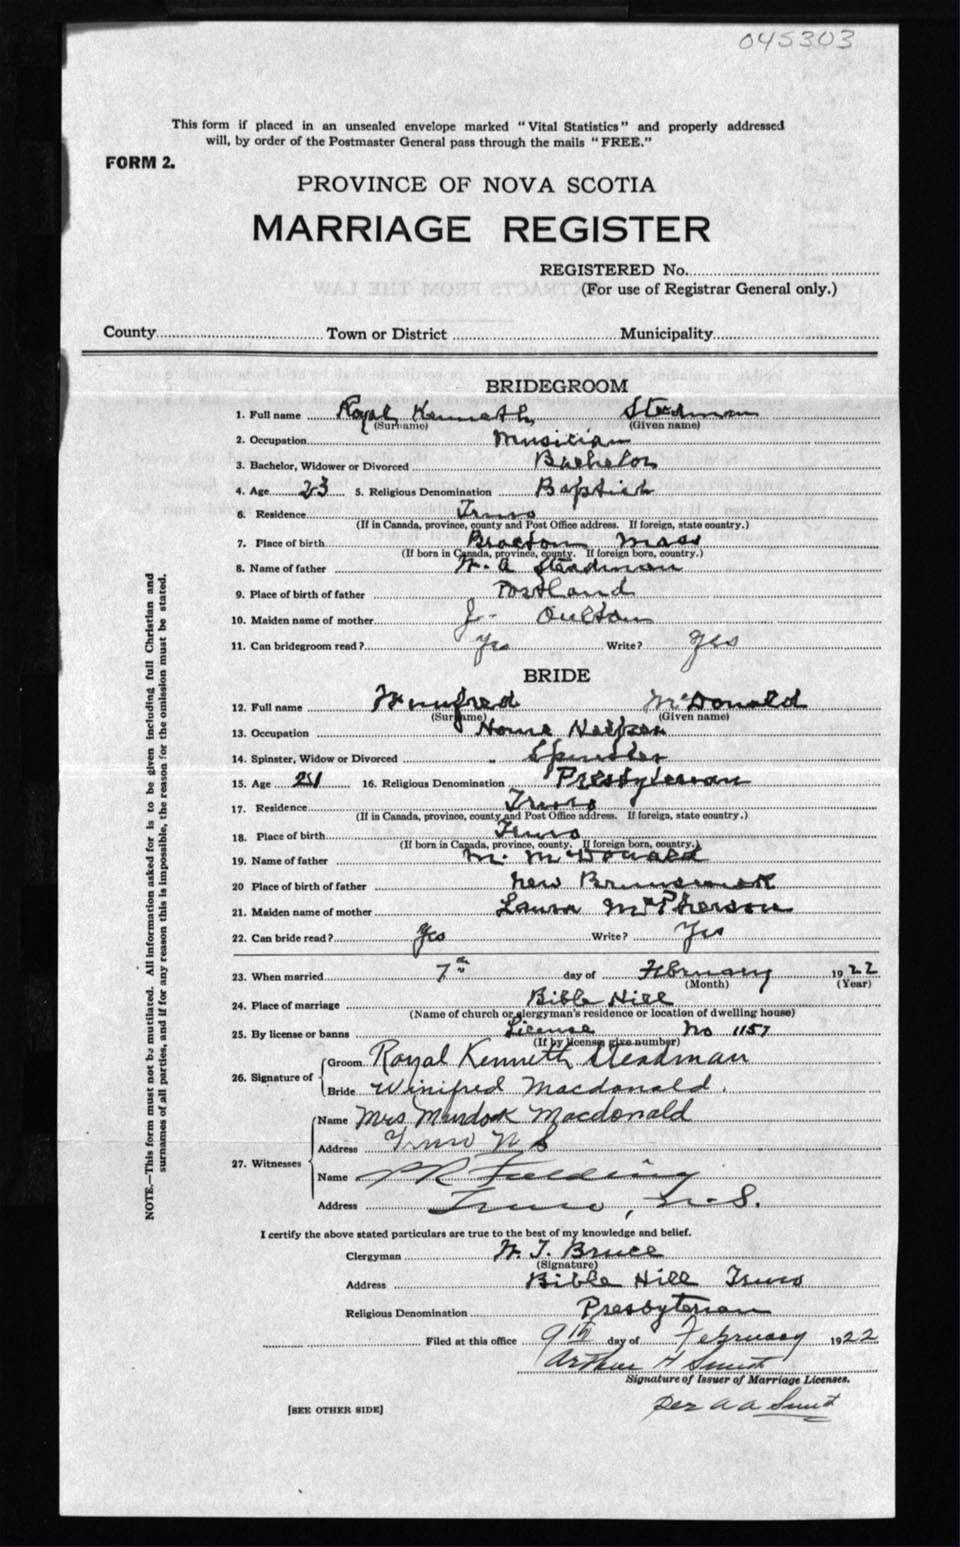 045303
This form if placed in an unsealed envelope marked "Vital Statistics" and properly addressed
will, by order of the Postmaster General pass through the mails "FREE."
FORM 2.
PROVINCE OF NOVA SCOTIA
MARRIAGE REGISTER
REGISTERED No.
(For use of Registrar General only.)
County Town or District Municipality
BRIDEGROOM
1. Full name Royal Kenneth Steadman
(Surname) (Given name)
2. Occupation Musician
3. Bachelor, Widower or Divorced Bachelor
4. Age 23 5. Religious Denomination Baptist
6. Residence Truro
(If in Canada, province, county and Post Office address. If foreign, state country.)
7. Place of birth Mass
(If born in Canada, province, county. If foreign born, country.)
8. Name of father W. A Steadman
9. Place of birth of father Portland
10. Maiden name of mother J. Oulton
11. Can bridegroom read? Yes Write? Yes
BRIDE
12. Full name Winifred McDonald
(Surname) (Given name)
13. Occupation Home Helper
14. Spinster, Widow or Divorced " Spinster
15. Age 21 16. Religious Denomination Presbyterian
17. Residence Truro
(If in Canada, province, county and Post Office address. If foreign, state country.)
18. Place of birth Truro
(If born in Canada, province, county. If foreign born, country.)
19. Name of father M. McDonald
20 Place of birth of father New Brunswick
21. Maiden name of mother Laura McPherson
22. Can bride read? Yes Write? Yes
23. When married 7th day of February 1922
(Month) (Year)
24. Place of marriage Bible Hill
(Name of church or clergyman's residence or location of dwelling house)
25. By license or banns License No 1157
(If by license give number)
26. Signature of Groom Royal Kenneth Steadman
Bride Winifred Macdonald.
27. Witnesses Name Mrs Murdock Macdonald
Address Truro N S
Name Fielding
Address Truro, N.S.
I certify the above stated particulars are true to the best of my knowledge and belief.
Clergyman W. T. Bruce
(Signature)
Address Bible Hill Truro
Religious Denomination Presbyterian
Filed at this office 9th day of February 1922
Arthur H Smith
Signature of Issuer of Marriage Licenses.
per A A Smith
[SEE OTHER SIDE]
NOTE.—This form must not be mutilated. All information asked for is to be given including full Christian and
surnames of all parties, and if for any reason this is impossible, the reason for the omission must be stated.